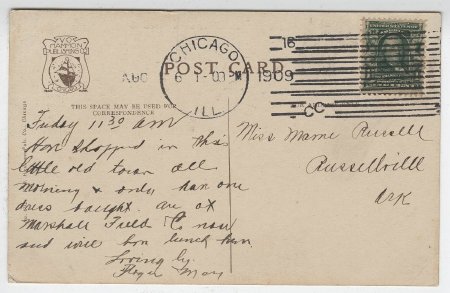 V.O.
HAMMON
PUBLISHING
CO.
CHICAGO
CHICAGO
ILL
AUG
6
1909
16
POST CARD
THIS SPACE MAY BE USED FOR
CORRESPONDENCE
Friday 11 30 am
Hav shopped in this
little old town all
morning & only hav one
dress bought. are at
Marshall Field Co now
and will hav lunch here.
Loving by
May
Miss Mame Russell
Russellville
Ark